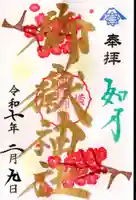 奉拝
如月
御嶽神社
令和七年二月九日